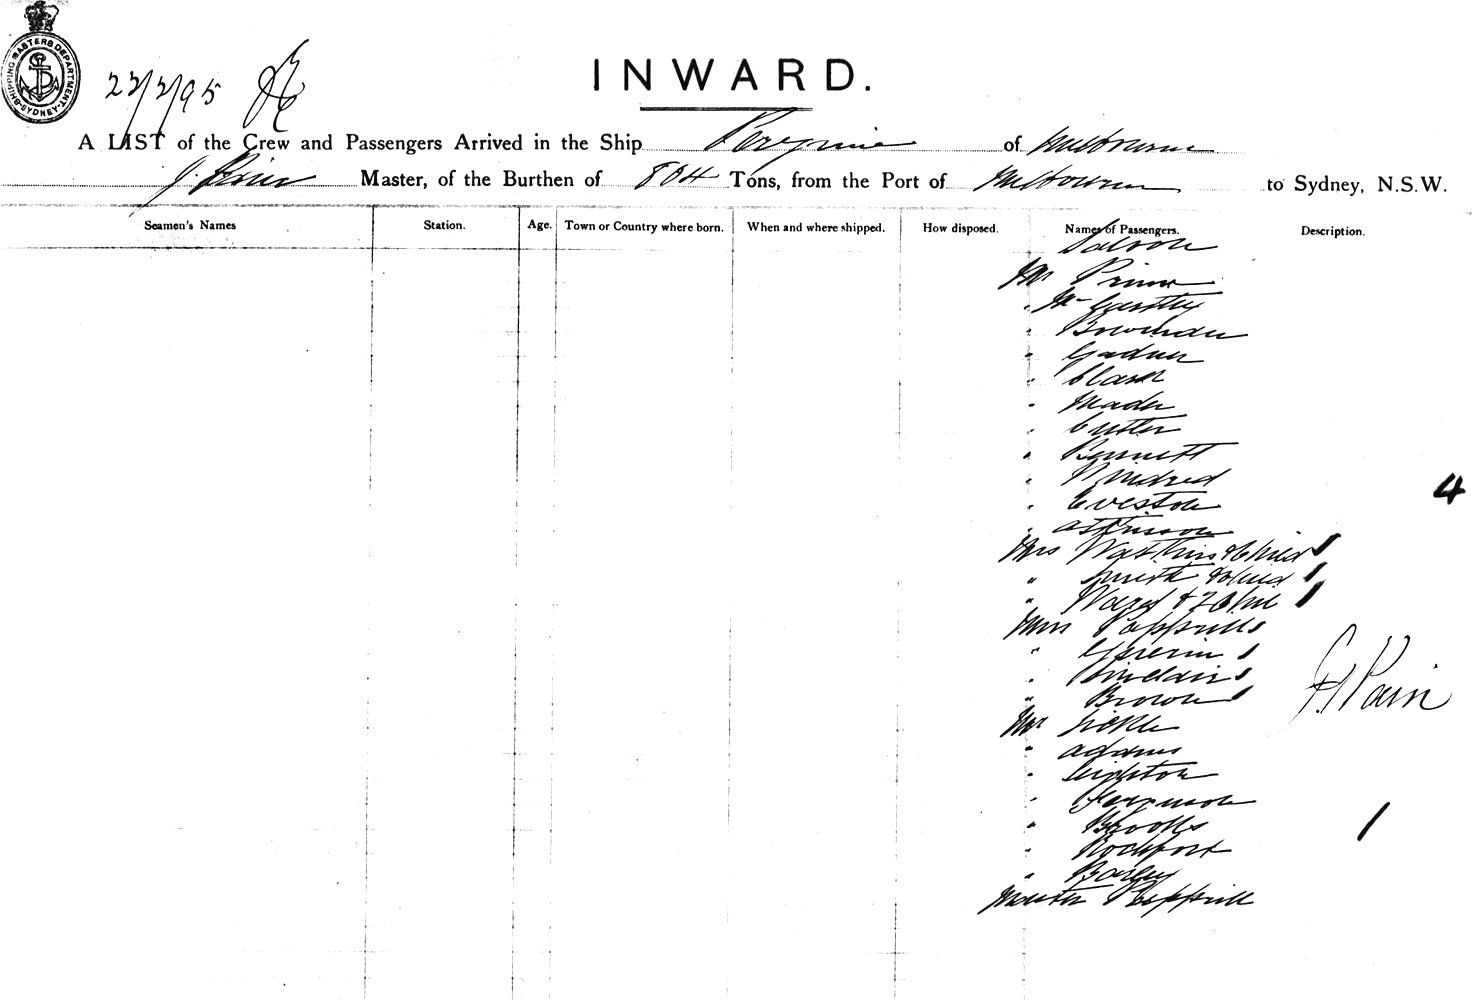 SHIPPING MASTERS DEPARTMENT SYDNEY
22/2/95
INWARD.
A LIST of the Crew and Passengers Arrived in the Ship Peregrine of Melbourne
J. Master, of the Burthen of 804 Tons, from the Port of Melbourne to Sydney, N.S.W.
Seamen's Names Station. Age. Town or Country where born. When and where shipped. How disposed. Names of Passengers. Description.
Saloon
Mr
" McCarthy
" Bowman
" Gardner
" Clark
" Mader
" Cutler
" Bennett
" Mildred
" Eveston
" Atkinson
Mrs Watkins & Child 1
" Smith & Child 1
" Ward & 2 Chil 1
Miss
"
" Sinclair 1
" Brown 1
Mr Sickle
" Adams
" Leighton
" Ferguson
" Brooks
" Rochfort
"
Master
4
1